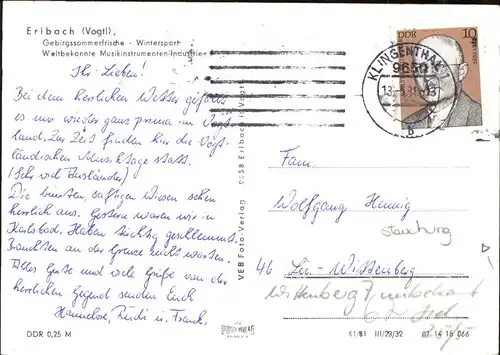 Erlbach (Vogtl).
Gebirgssommerfrische - Wintersport
Weltbekannte Musikinstrumenten-Industrie
Ihr Lieben!
Bei dem herrlichen Wetter gefällt
es uns wieder ganz prima im Vogt-
land. Zur Zeit finden hier die Vogt-
ländischen Musiktage statt.
(Sehr viel Ausländer)
Die bunten, saftigen Wiesen sehen
herrlich aus. Gestern waren wir in
Karlsbad. Haben tüchtig geschlemmt.
Brauchten an der Grenze nicht warten.
Alles Gute und viele Grüße von der
herrlichen Gegend senden Euch
Hannelore, Rudi u. Frank.
DDR 0,25 M
VEB Foto-Verlag 9658 Erlbach i. Vogtl
DDR
10
KLINGENTHAL
9650
B
Fam.
Wolfgang Hennig
46 Lu.-Wittenberg
Wittenberg
III/23/32 07 14 16 066